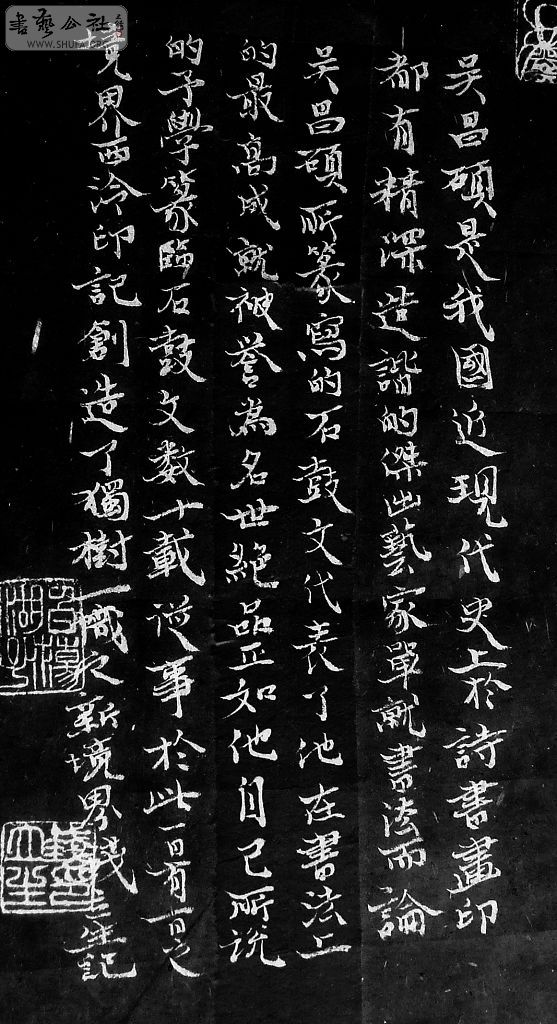 吴昌碩是我國近現代史上於詩書畫印
都有精深造諧的傑出藝家單就書法而論
吴昌碩所篆寫的石鼓文代表了他在書法上
的最高成就被誉為名世絕品正如他自己所說
的予學篆臨石鼓文数十載從事於此一日有一日之
境界西泠印記創造了獨樹一幟之新境界
書藝公社
WWW.SHUFA.ORG